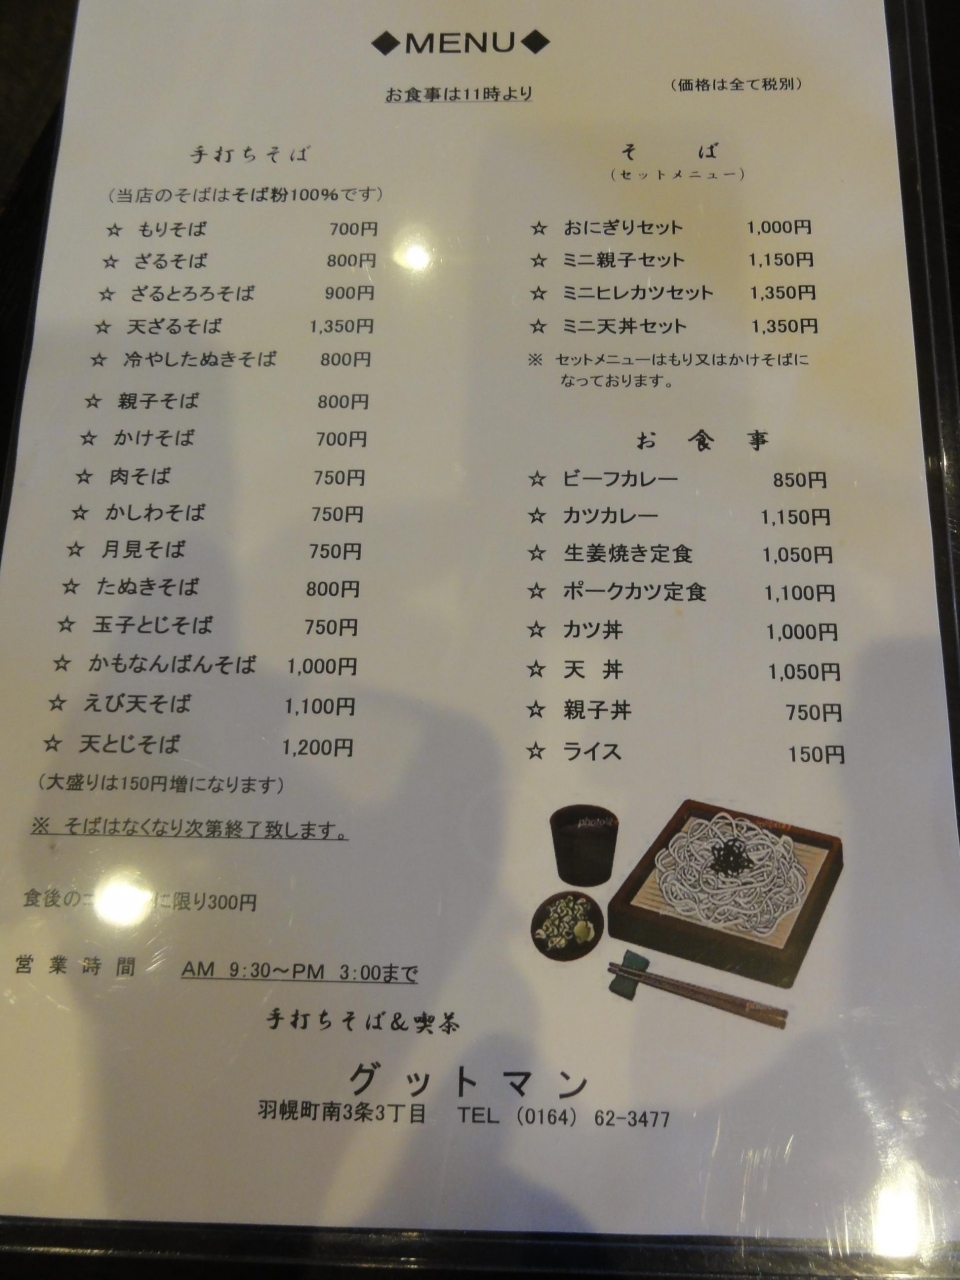 ◆MENU◆
お食事は11時より
（価格は全て税別）
手打ちそば
（当店のそばはそば粉100%です）
☆ もりそば 700円
☆ ざるそば 800円
☆ ざるとろろそば 900円
☆ 天ざるそば 1,350円
☆ 冷やしたぬきそば 800円
☆ 親子そば 800円
☆ かけそば 700円
☆ 肉そば 750円
☆ かしわそば 750円
☆ 月見そば 750円
☆ たぬきそば 800円
☆ 玉子とじそば 750円
☆ かもなんばんそば 1,000円
☆ えび天そば 1,100円
☆ 天とじそば 1,200円
（大盛りは150円増になります）
※ そばはなくなり次第終了致します。
食後のコ に限り300円
そ ば
（セットメニュー）
☆ おにぎりセット 1,000円
☆ ミニ親子セット 1,150円
☆ ミニヒレカツセット 1,350円
☆ ミニ天丼セット 1,350円
※ セットメニューはもり又はかけそばに
なっております。
お 食 事
☆ ビーフカレー 850円
☆ カツカレー 1,150円
☆ 生姜焼き定食 1,050円
☆ ポークカツ定食 1,100円
☆ カツ丼 1,000円
☆ 天 丼 1,050円
☆ 親子丼 750円
☆ ライス 150円
営 業 時 間 AM 9:30～PM 3:00まで
手打ちそば＆喫茶
グ ッ ト マ ン
羽幌町南3条3丁目 TEL （0164） 62-3477